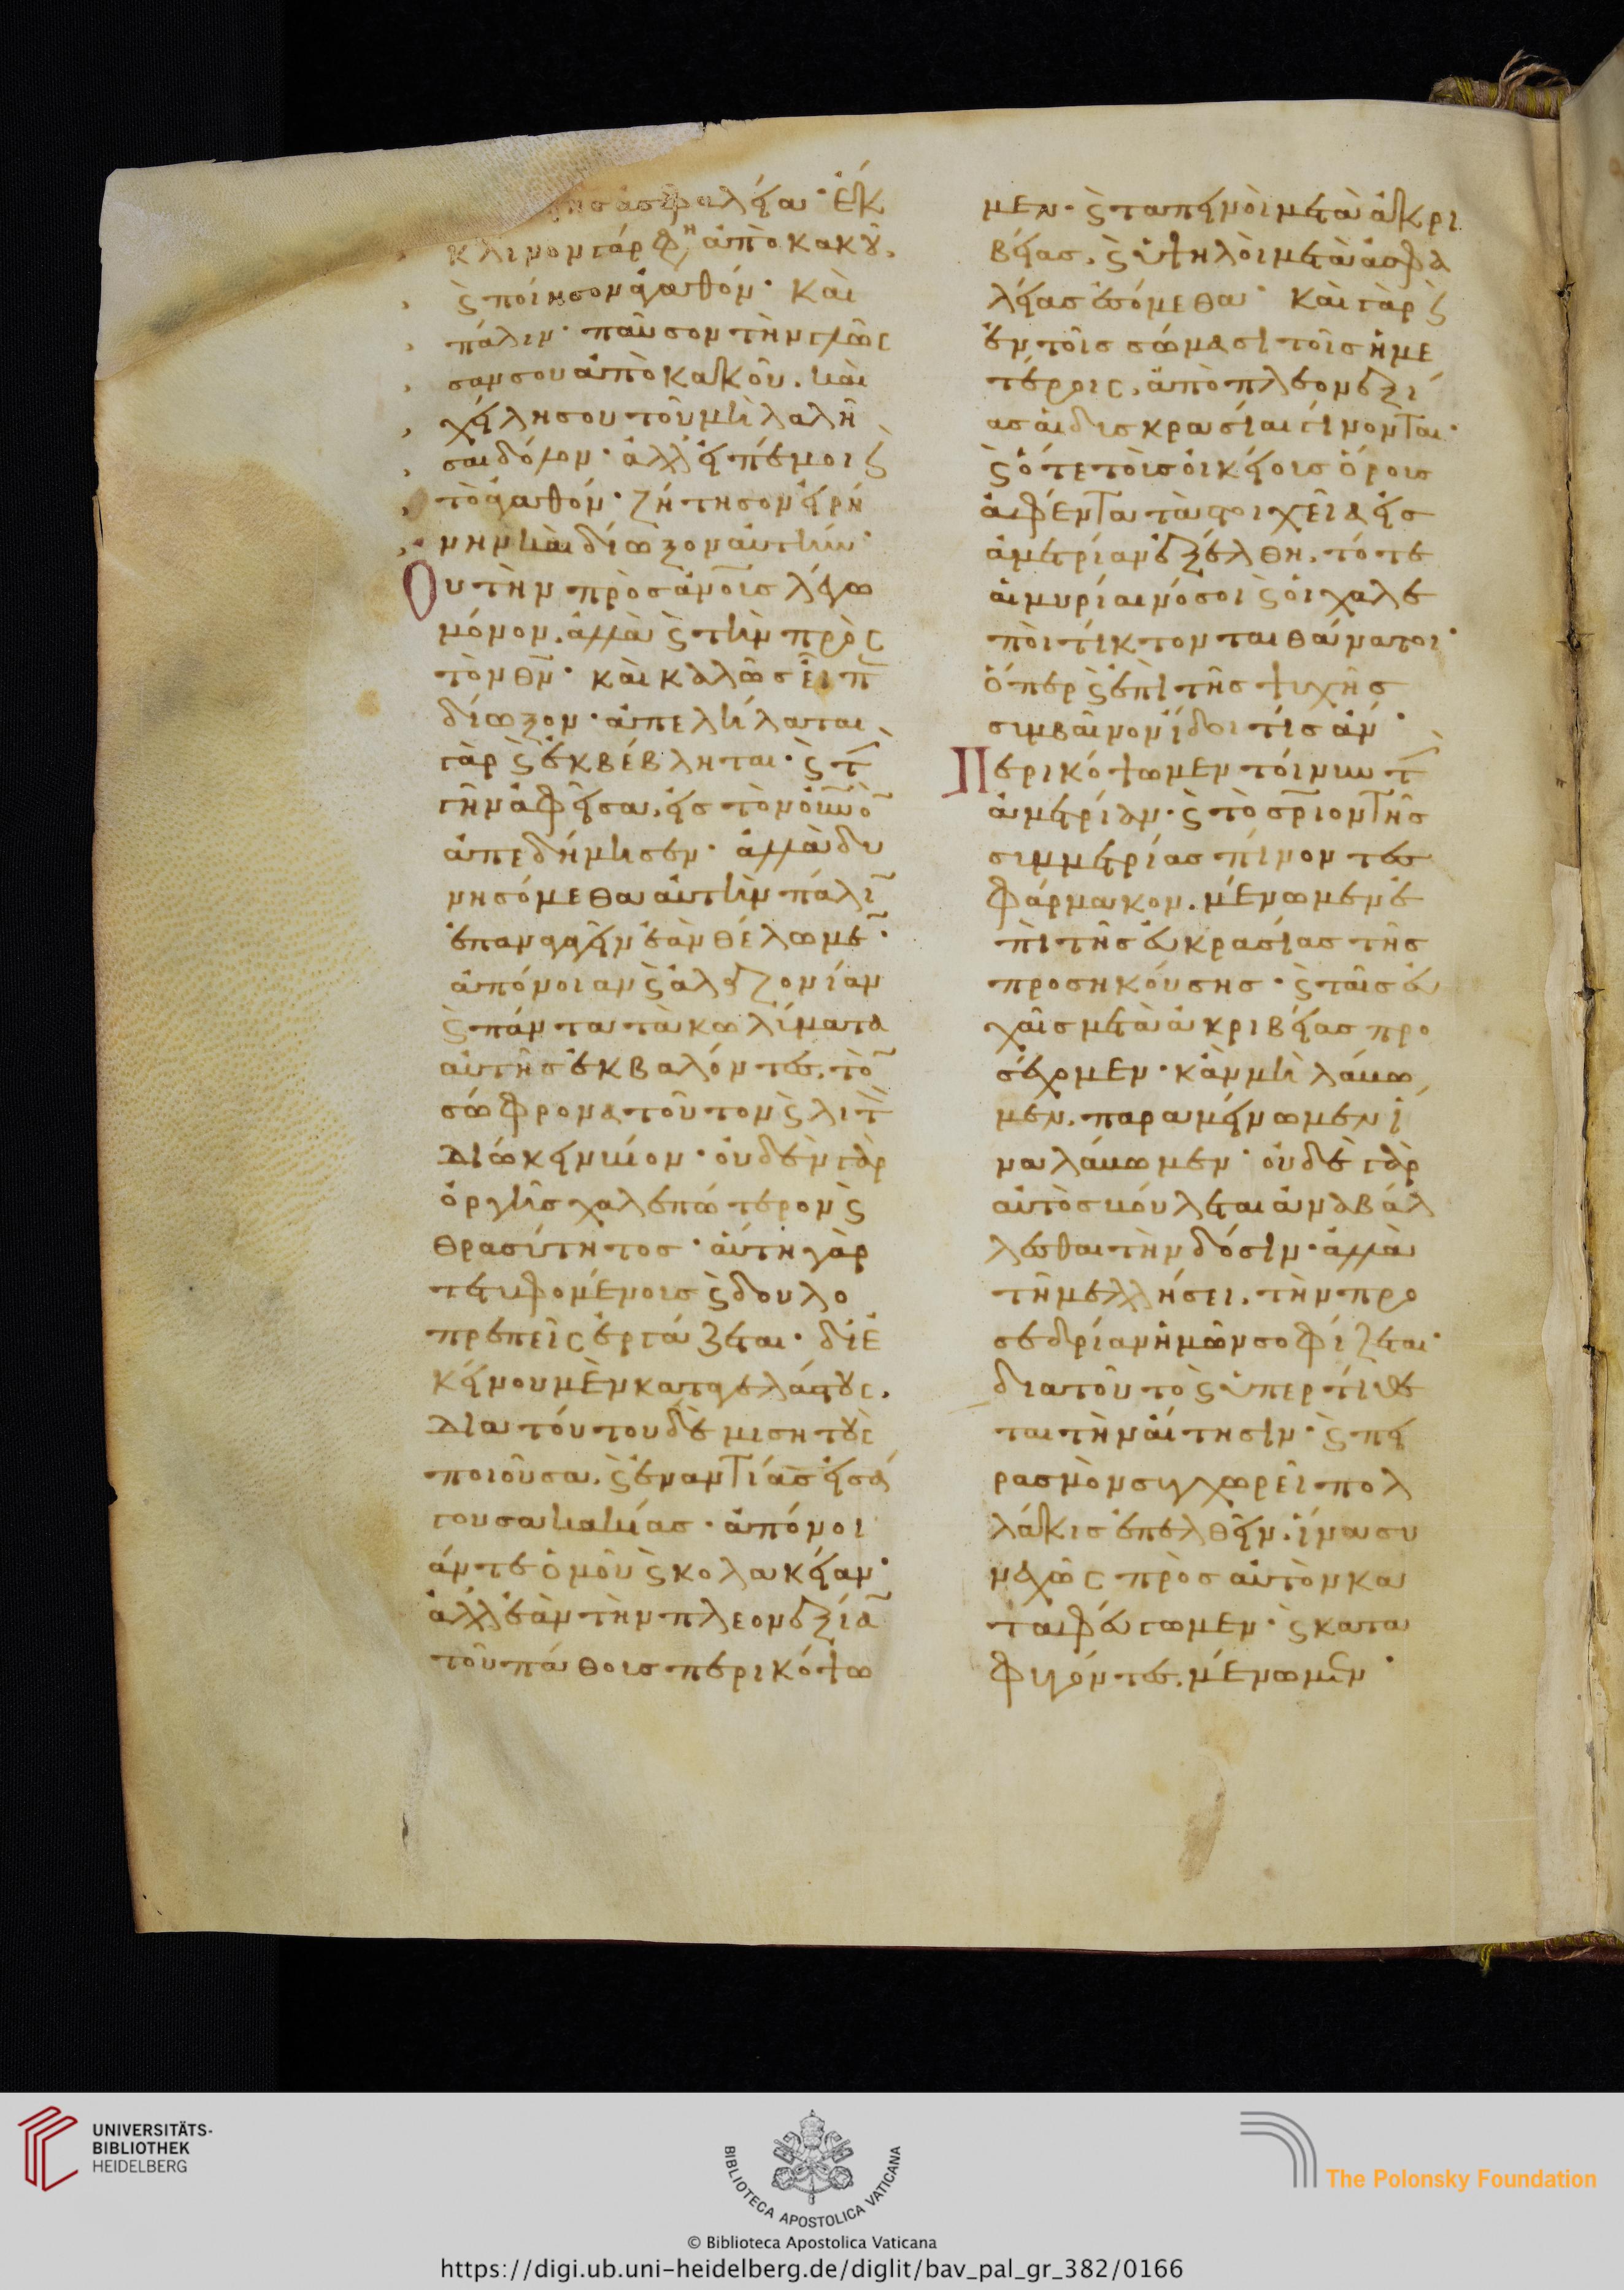 ἀσφαλεία· ἐκ
κλινον γάρ φη ἀπὸ κακοῦ.
ϛ ποίησον ἀγαθόν· καὶ
πάλιν· παῦσον τὴν γλῶσ
σαν σου ἀπὸ κακοῦ. καὶ
χείλη σου τοῦ μὴ λαλῆ
σαι δόλον· ἀλλ' εἰπέ μοι ϛ
τὸ ἀγαθόν· ζήτησον εἰρή
νην καὶ δίωξον αὐτήν·
Οὐ τὴν πρὸς ἀνοις λέγω
μόνον. ἀλλὰ ϛ τὴν πρὸς
τὸν θν· καὶ καλῶς εἶπ
δίωξον· ἀπελήλαται
γὰρ ϛ ἐκβέβληται· ϛ τ
γῆν ἀφεῖσα, εἰς τὸν οὐνο
ἀπεδήμησεν· ἀλλὰ δυ
νησόμεθα αὐτὴν πάλι
ἐπαναγαγεῖν ἐὰν θέλωμε·
ἀπόνοιαν ϛ ἀλαζονίαν
ϛ πάντα τὰ κωλύματα
αὐτῆς ἐκβαλόντες. τὸ
σώφρονα τοῦτον ϛ λιτ
διώκειν βίον· οὐδὲν γὰρ
ὀργῆς χαλεπώτερον ϛ
θρασύτητος· αὐτὴ γὰρ
τετυφομένοις ϛ δουλο
πρεπεῖς ἐργάζεται· δι' ἐ
κείνου μὲν καταγελάστους.
Δια τούτου δὲ μισητοὺς
ποιοῦσα. ϛ ἐναντίας εἰσά
γουσα κακίας· ἀπόνοι
άν τε ὁμοῦ ϛ κολακείαν·
ἀλλ' ἐὰν τὴν πλεονεξία
τοῦ πάθοις περικόψω
μεν· ϛ ταπεινοὶ μετὰ ἀκρι
βείας. ϛ ὑψηλοὶ μετὰ ἀσφα
λείας ἐσόμεθα· καὶ γὰρ ϛ
ἐν τοῖς σώμασι τοῖς ἡμε
τέροις. ἀπὸ πλεονεξί
ας αἱ δισκρασίαι γίνονται·
ϛ ὅτε τοὶς οἰκείοις ὅροις
ἀφέντα τὰ στοιχεῖα εἰς
ἀμετρίαν ἐξέλθη. τότε
αἱ μυρίαι νόσοι ϛ οἱ χαλε
ποὶ τίκτονται θάνατοι·
ὅπερ ϛ ἐπὶ τῆς ψυχῆς
συμβαῖνον ἴδοι τίς ἀν·
Περικόψωμεν τοίνυν τ
ἀμετρίαν· ϛ τὸ σριον τῆς
συμμετρίας πίνοντες
φάρμακον. μένωμεν ἐ
πὶ τῆς εὐκρασίας τῆς
προσηκούσης· ϛ ταῖς εὐ
χαῖς μετὰ ἀκριβείας προ
σέχομεν· κἂν μὴ λάβω
μεν. παραμείνωμεν ἵ
να λάβωμεν· οὐδὲ γὰρ
αὐτὸς βούλεται ἀναβάλ
λεσθαι τὴν δόσιν· ἀλλὰ
τῆ μελλήσει. τὴν προ
σεδρίαν ἡμῶν σοφίζεται·
διατοῦτο ϛ ὑπερτίθε
ται τὴν αἴτησιν· ϛ πει
ρασμὸν συγχωρεῖ πολ
λάκις ἐπελθεῖν. ἵνα συ
νεχῶς πρὸς αὐτὸν κα
ταφεύγωμεν· ϛ κατα
φυγόντες. μένωμεν·
UNIVERSITÄTS-
BIBLIOTHEK
HEIDELBERG
BIBLIOTECA APOSTOLICA VATICANA
The Polonsky Foundation
© Biblioteca Apostolica Vaticana
https://digi.ub.uni-heidelberg.de/diglit/bav_pal_gr_382/0166